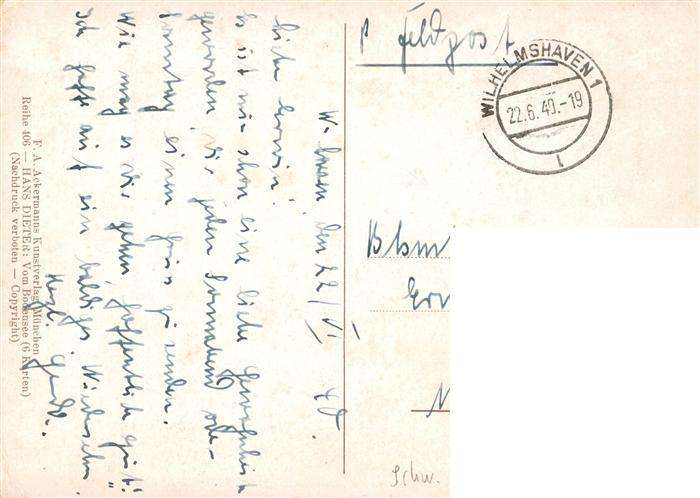 Feldpost
WILHELMSHAVEN 1
22.6.40.-19
W-haven den 22/VI 40.
Liebe Erwin!
Es ist mir schon eine liebe Gewohnheit
geworden, dir jeden Sonnabend oder
Sonntag einen Gruss zu senden.
Wie mag es dir gehen hoffentlich gut!
Ich hoffe auf ein baldiges Wiedersehn.
Herzl.
F. A. Ackermanns Kunstverlag, München
Reihe 406 — HANS DIETER: Vom Bodensee (6 Karten)
(Nachdruck verboten — Copyright)
Schw.